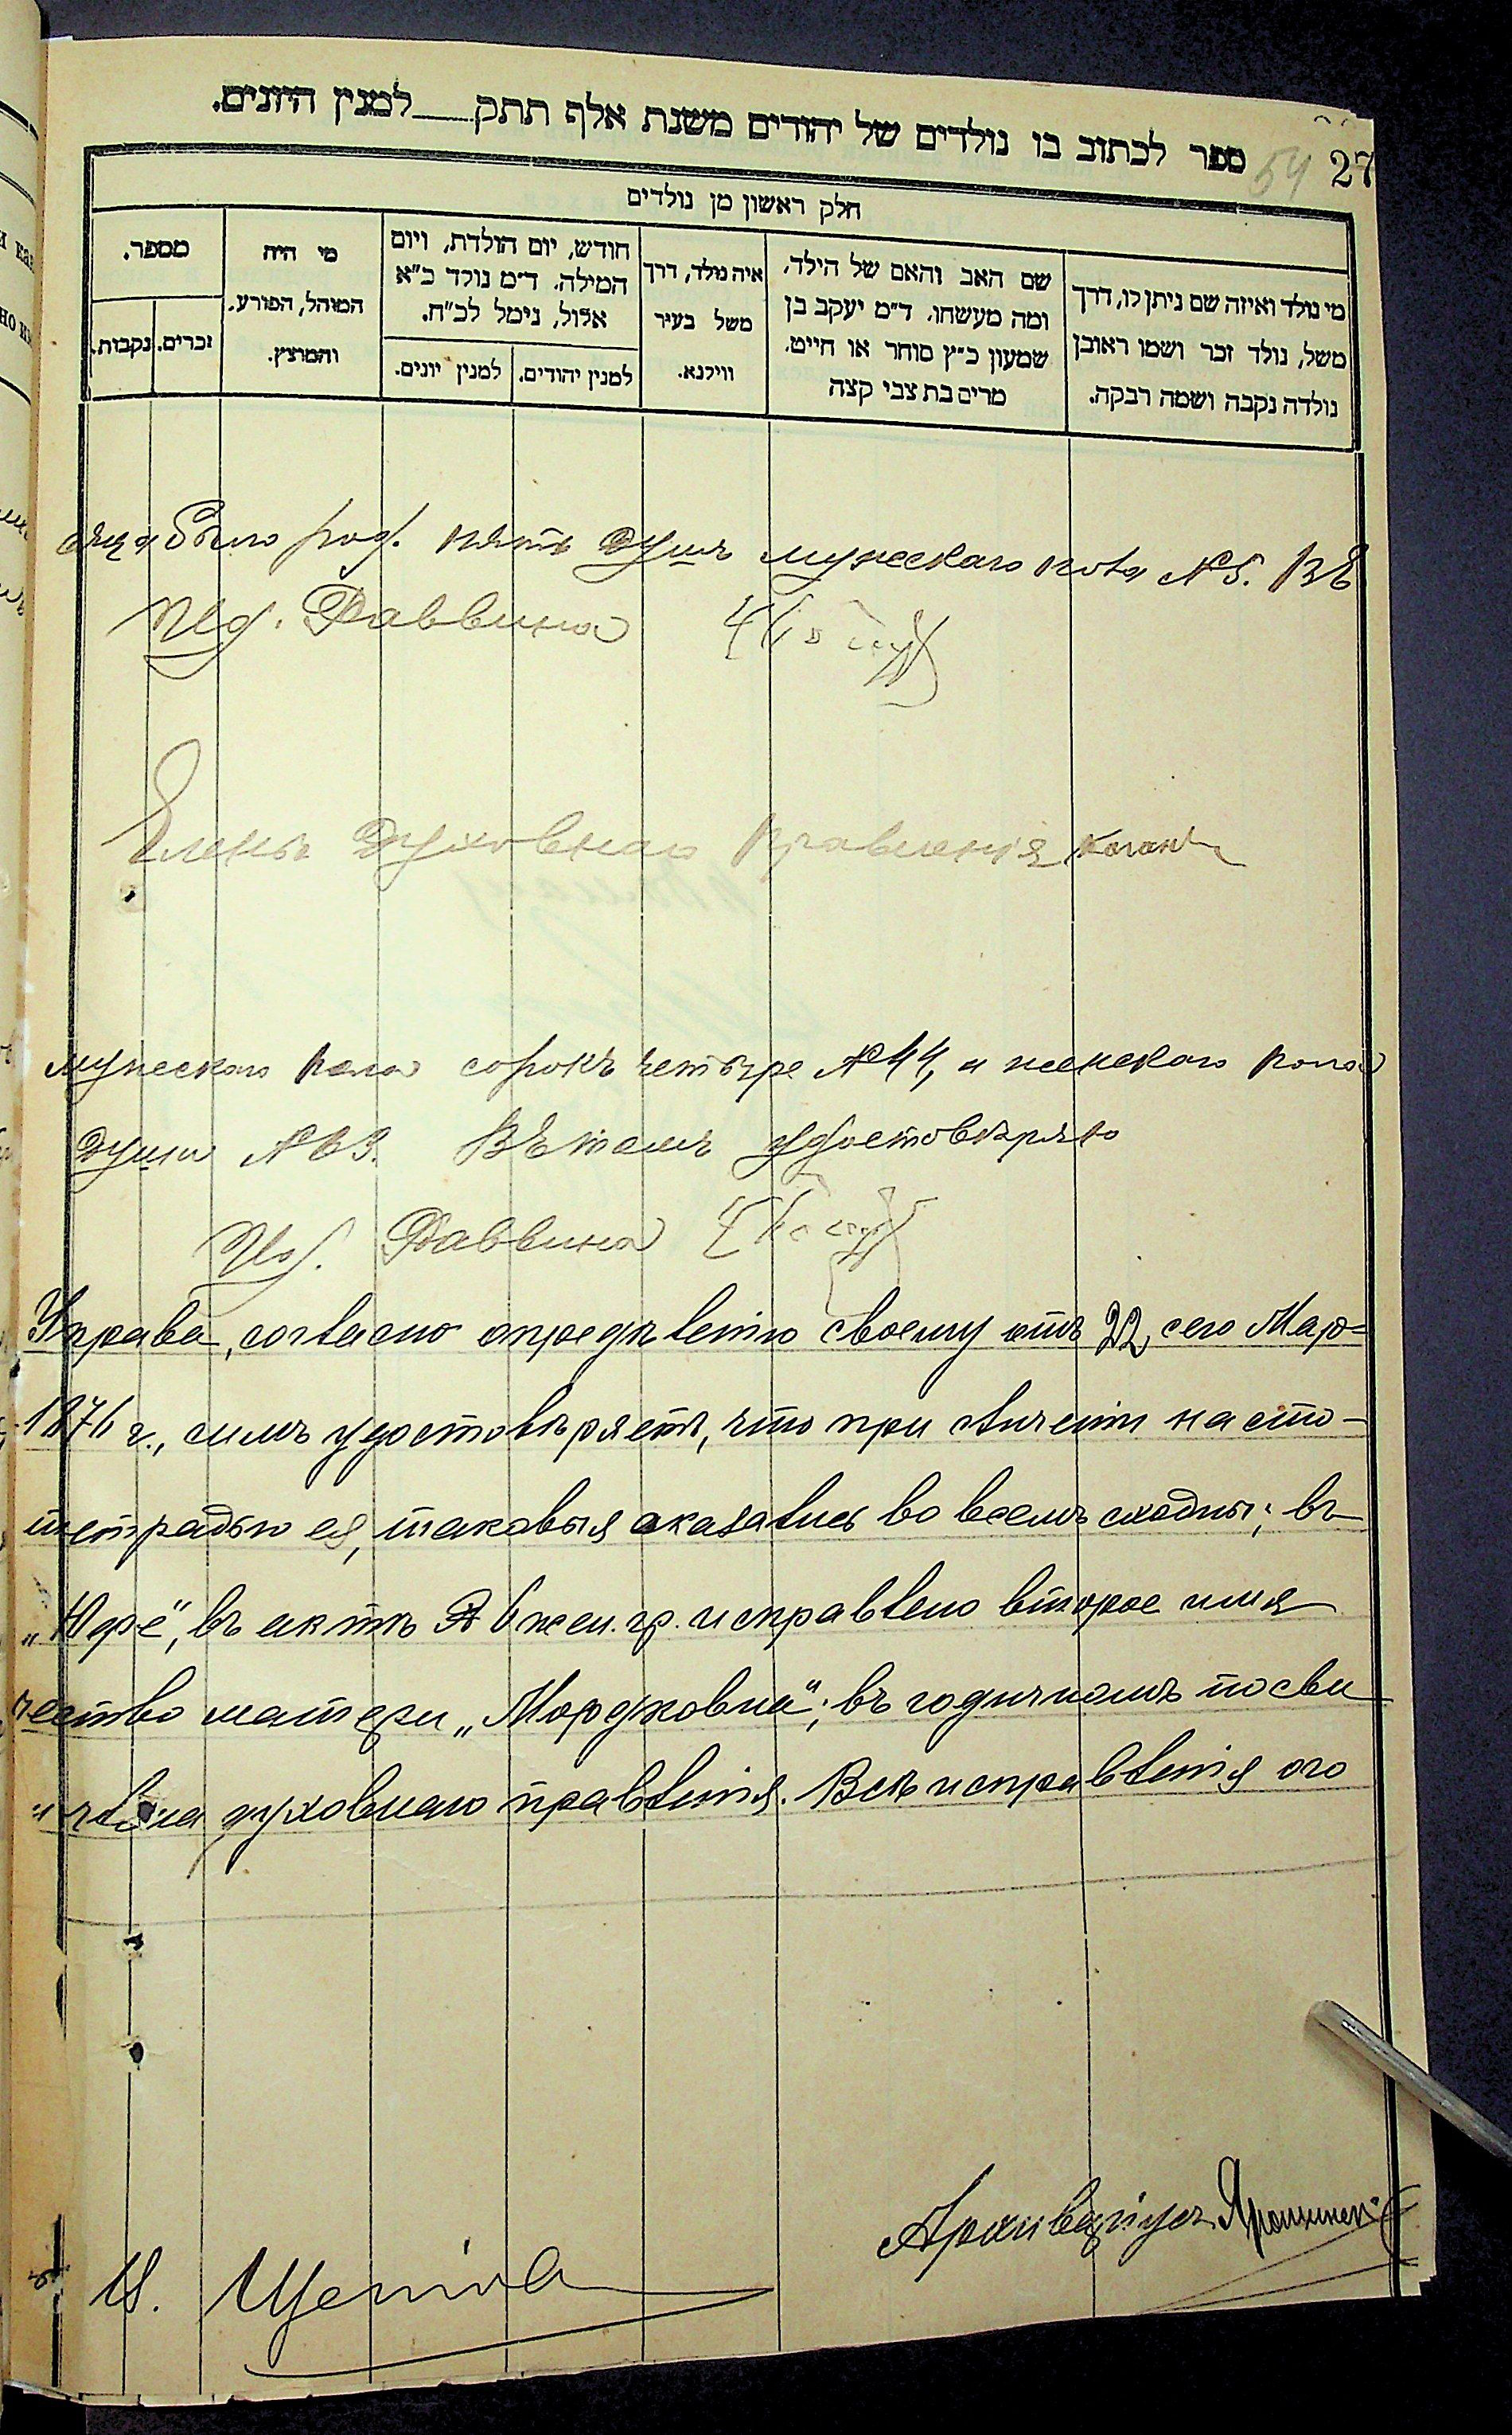 27
54
ספר לכתוב בו נולדים של יהודים משנת אלף תתק___למנין היונים.
חלק ראשון מן נולדים
מי נולד ואיזה שם ניתן לו, דרך
משל, נולד זכר ושמו ראובן
נולדה נקבה ושמה רבקה.
שם האב והאם של הילד,
ומה מעשהו. ד״מ יעקב בן
שמעון כ״ץ סוחר או חייט.
מרים בת צבי קצה
איה נולד, דרך
משל בעיר
ווילנא.
חודש, יום הולדת, ויום
המילה. ד״מ נולד כ״א
אלול, נימל לכ״ח.
למנין יהודים.
למנין יונים.
מי היה
המוהל, הפורע.
והמוצץ.
מספר.
זכרים.
נקבות.
было род. пять душъ мужескаго пола №5. Въ
Раввина
Членъ Духовнаго Правленія Каганъ
мужескаго пола сорокъ четыре №44, и женскаго пола
души Въ томъ удостовѣряю
Раввина
Управа, согласно опредѣленію своему отъ 22 сего Мар-
1876 г., симъ удостовѣряетъ, что при сличеніи насто-
тетрадью ея, таковыя оказались во всемъ сходны; въ
въ актѣ № 6 жен. гр. исправлено второе имя
чество матери „Мордковна"; въ годичномъ
и члена духовнаго правленія. Всѣ исправленія ого
Архиваріусъ